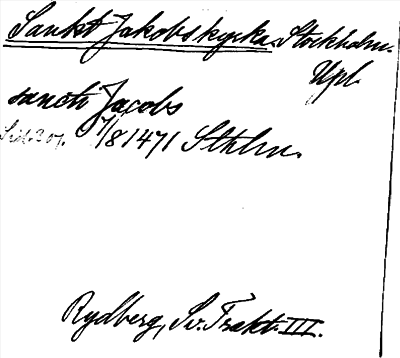 Sankt Jakobs kyrka. Stockholm.
Upl.
sancti Jacobs
7/8 1471 Sthlm.
Rydberg, Sv. Trakt. III.